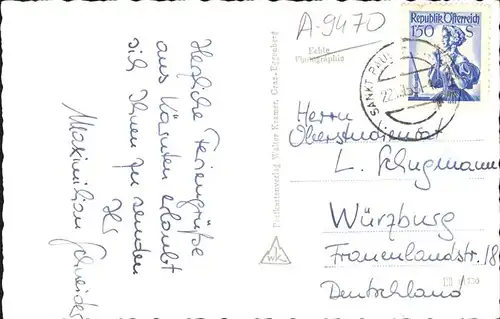 A-9470
Herzliche Feriengrüße
aus Kärnten erlaubt
sich Ihnen zu senden
Ihr
Maximilian Schneider
Postkartenverlag Walter Kramer, Graz-Eggenberg
wk
Echte
Photographie
Republik Österreich
1·50 S
SANKT PAUL
22.
Herrn
Oberstudienrat
L. Schugmann
Würzburg
Frauenlandstr. 18
Deutschland